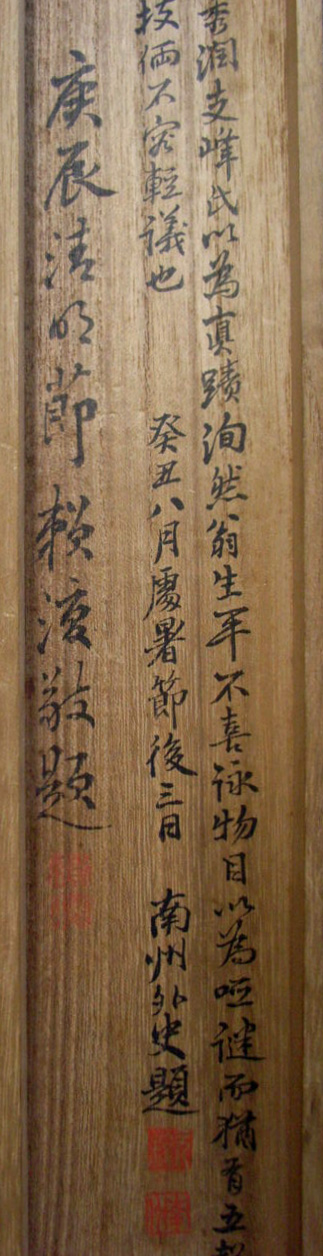 秀潤支峰氏以為真蹟洵然翁生平不喜詠物目以為啞謎而猶有五
技倆不容輕議也
癸丑八月處暑節後三日 南州外史題
庚辰清明節 賴復敬題